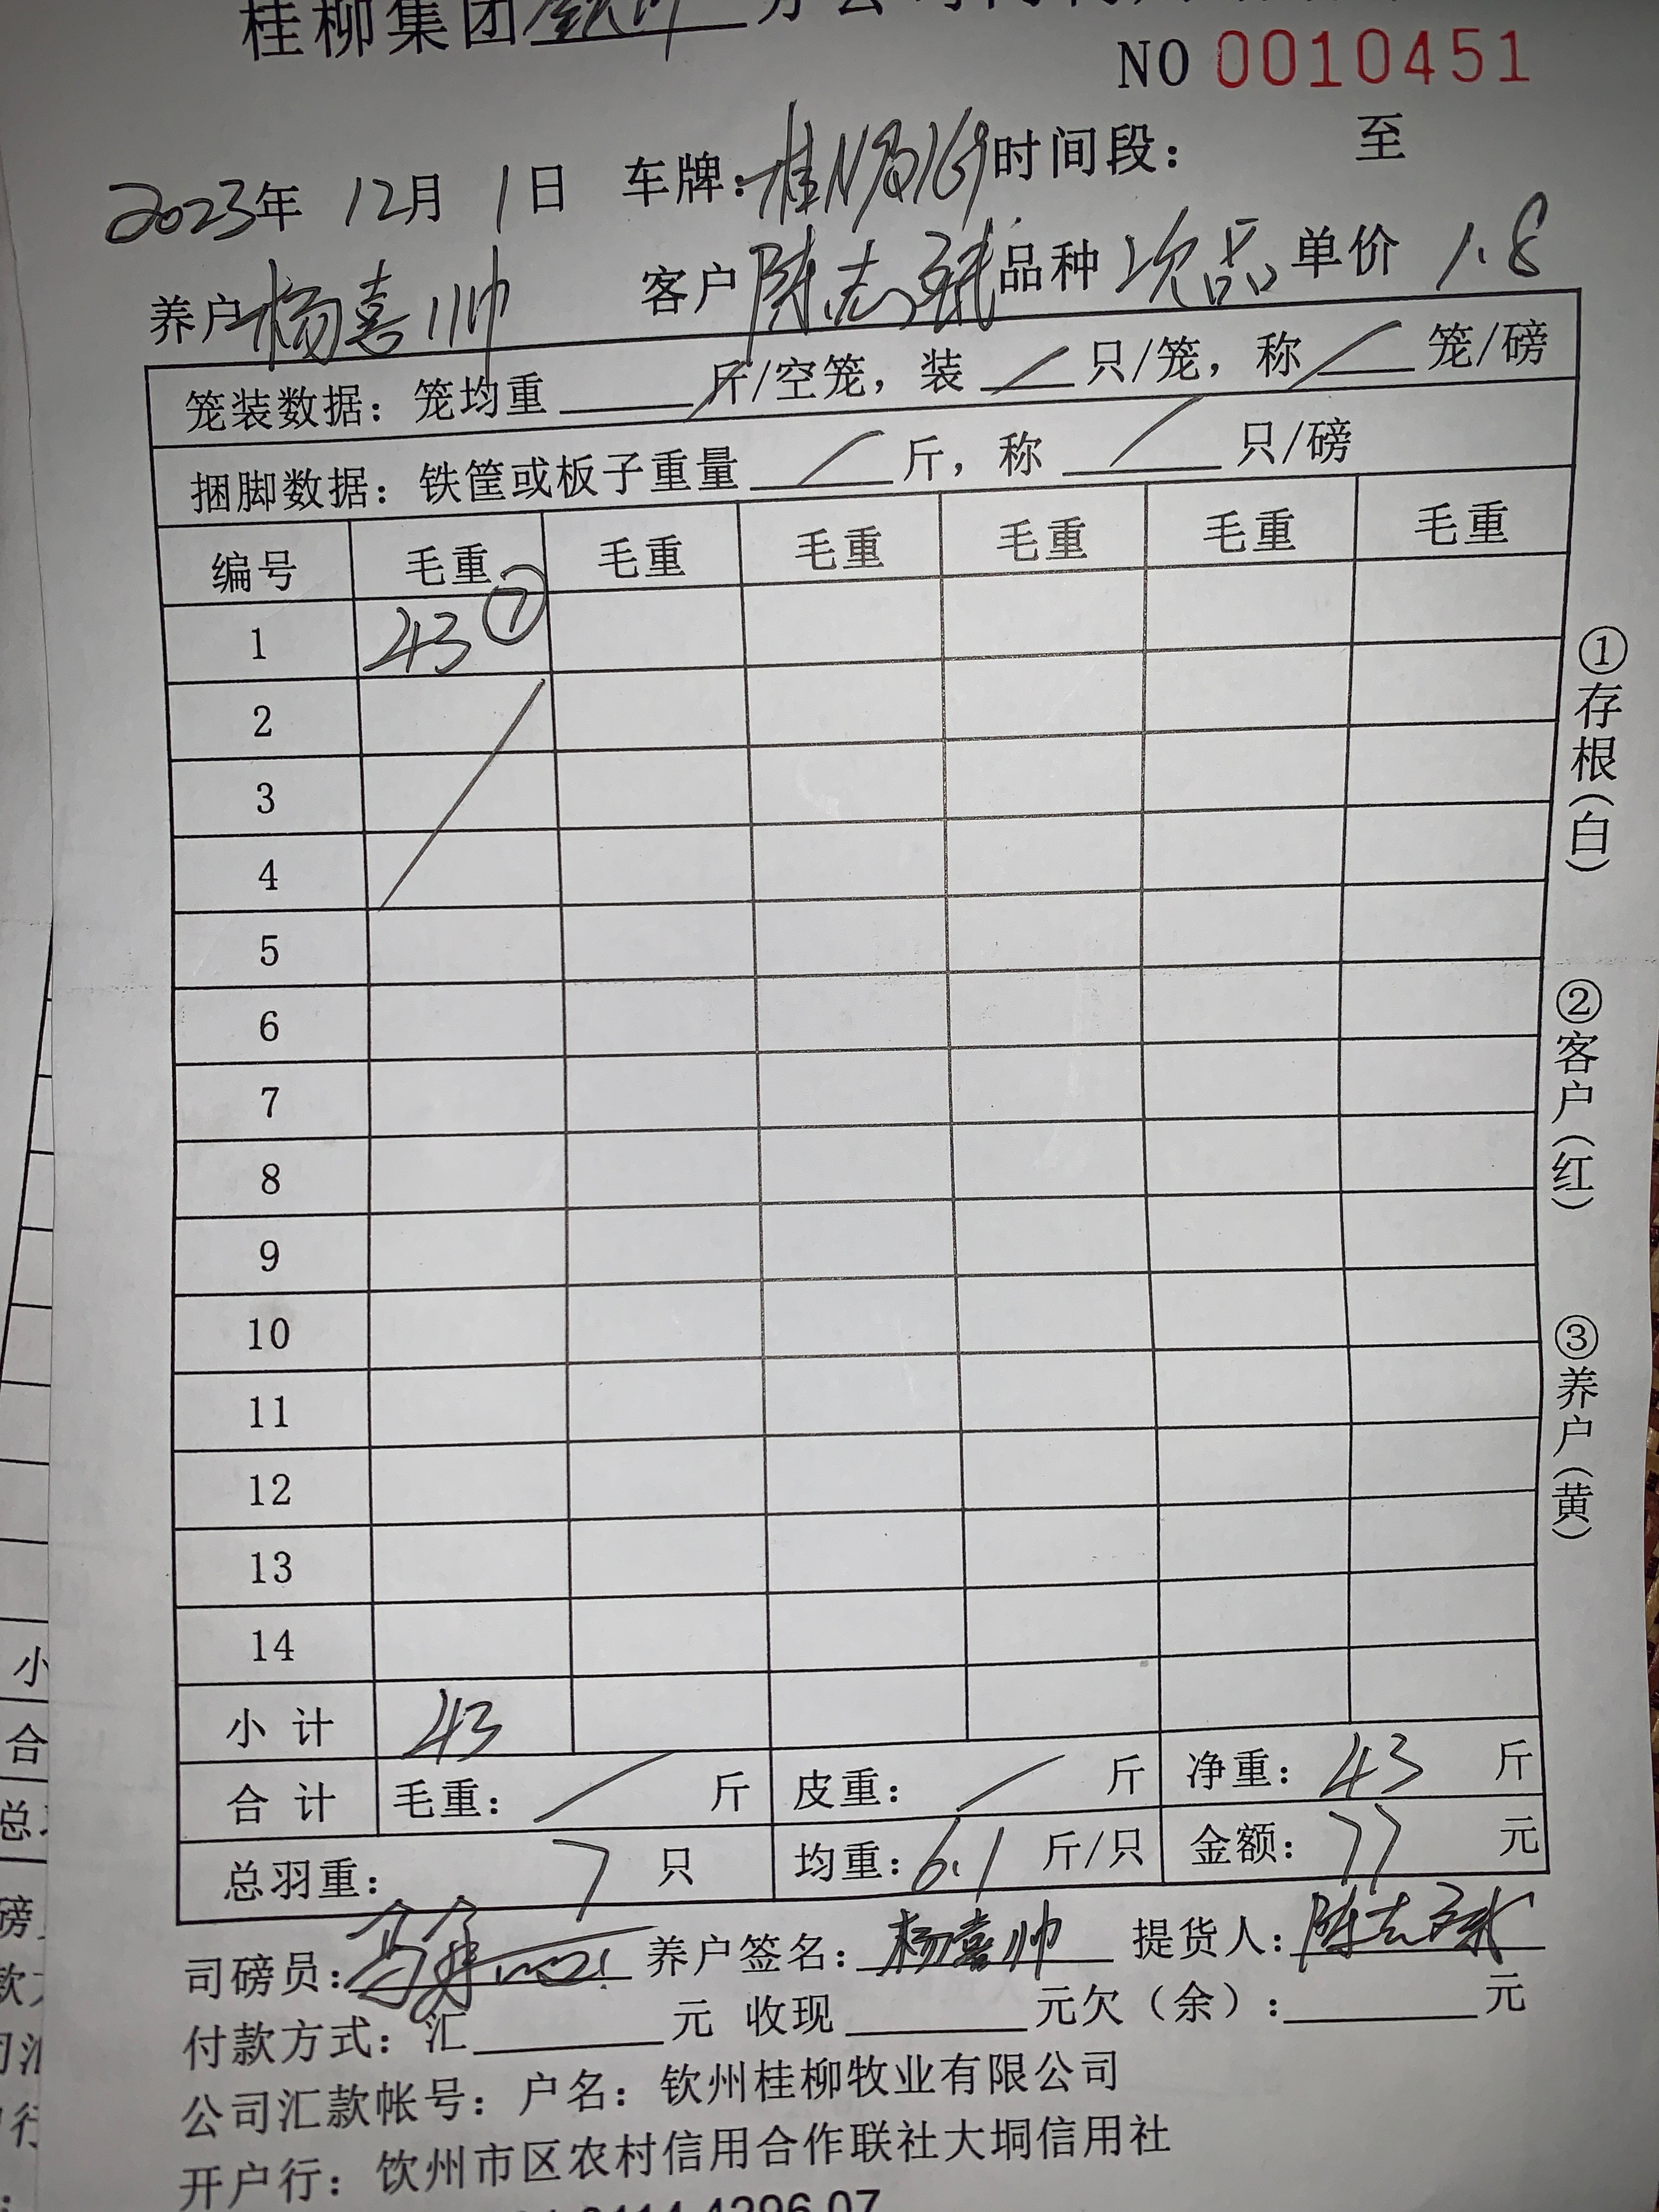 桂柳集团钦州分公司
NO 0010451
2023年 12月 1日 车牌: 时间段: 至
养户 杨喜帅 客户 陈志斌 品种 次品 单价 1.8
笼装数据: 笼均重 斤/空笼, 装 只/笼, 称 笼/磅
捆脚数据: 铁筐或板子重量 斤, 称 只/磅
编号 毛重 毛重 毛重 毛重 毛重 毛重
1 43 ⑦
2
3
4
5
6
7
8
9
10
11
12
13
14
小计 43
合计 毛重: 斤 皮重: 斤 净重: 43 斤
总羽重: 7 只 均重: 6.1 斤/只 金额: 77 元
司磅员: 养户签名: 杨喜帅 提货人: 陈志斌
付款方式: 汇 元 收现 元欠(余): 元
公司汇款帐号: 户名: 钦州桂柳牧业有限公司
开户行: 钦州市区农村信用合作联社大垌信用社
①存根(白)
②客户(红)
③养户(黄)
小
合
总
磅
款